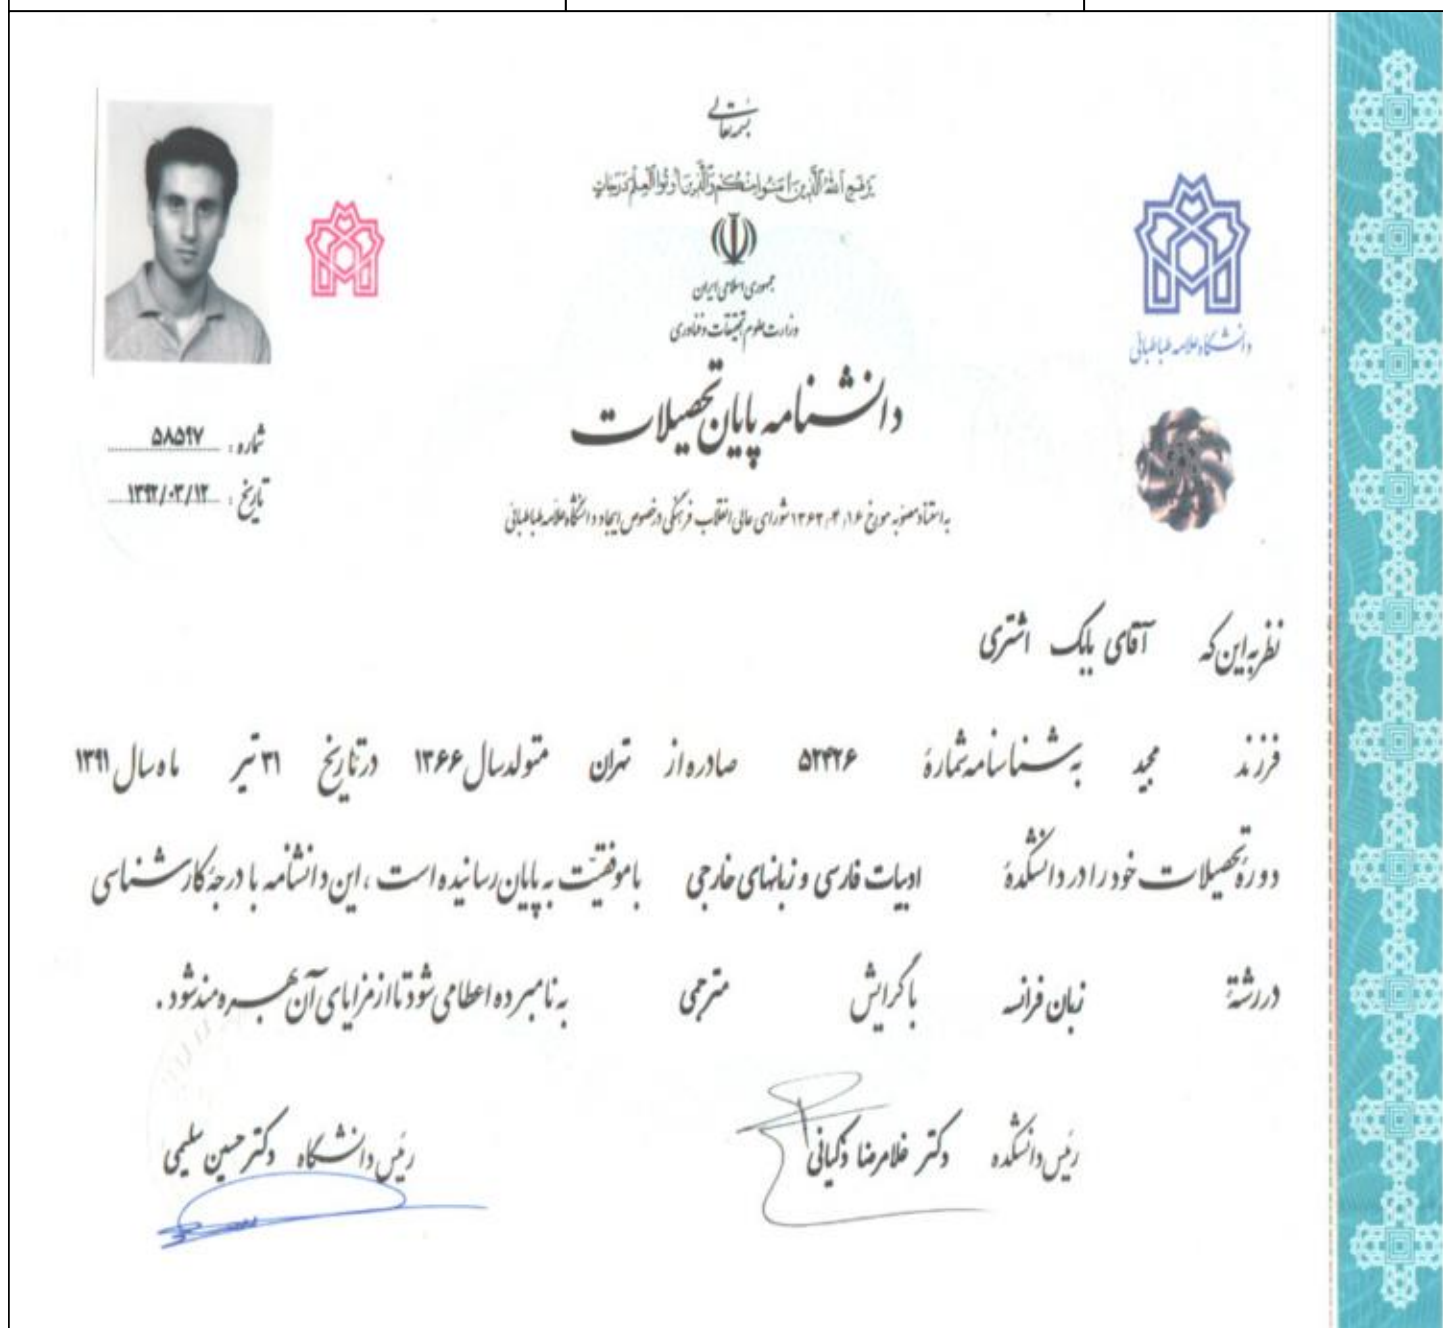 بسمه تعالی
یرفع الله الذین آمنوا منکم والذین اوتوا العلم درجات
جمهوری اسلامی ایران
وزارت علوم تحقیقات و فناوری
دانشگاه علامه طباطبائی
دانشنامه پایان تحصیلات
شماره : ۵۸۵۹۷
تاریخ : ۱۳۹۲/۰۳/۱۲
به استناد مصوبه مورخ ۱۳۶۳,۴,۱۶ شورای عالی انقلاب فرهنگی در خصوص ایجاد دانشگاه علامه طباطبائی
نظر به این که آقای بابک اشتری
فرزند مجید به شناسنامه شمارهٔ ۵۲۴۲۶ صادره از تهران متولد سال ۱۳۶۶ در تاریخ ۳۱ تیر ماه سال ۱۳۹۱
دورهٔ تحصیلات خود را در دانشکدهٔ ادبیات فارسی و زبانهای خارجی با موفقیّت به پایان رسانیده است ، این دانشنامه با درجهٔ کارشناسی
در رشتهٔ زبان فرانسه با گرایش مترجمی به نامبرده اعطا می شود تا از مزایای آن بهره مند شود .
رئیس دانشکده دکتر غلامرضا ذکیانی
رئیس دانشگاه دکتر حسین سلیمی